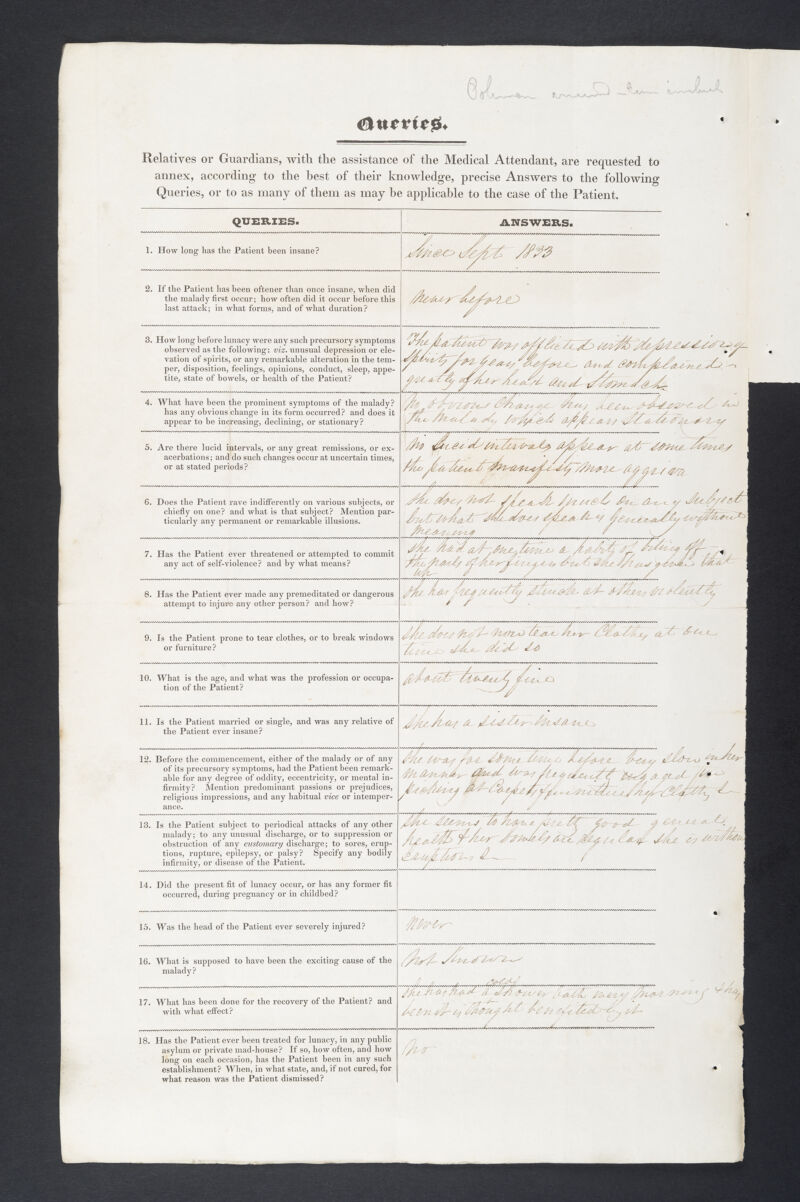 Queries.
Relatives or Guardians, with the assistance of the Medical Attendant, are requested to
annex, according to the best of their knowledge, precise Answers to the following
Queries, or to as many of them as may be applicable to the case of the Patient.
QUERIES.
ANSWERS.
1. How long has the Patient been insane?
Since Sept 1833
2. If the Patient has been oftener than once insane, when did
the malady first occur; how often did it occur before this
last attack; in what forms, and of what duration?
Never before
3. How long before lunacy were any such precursory symptoms
observed as the following: viz. unusual depression or ele-
vation of spirits, or any remarkable alteration in the tem-
per, disposition, feelings, opinions, conduct, sleep, appe-
tite, state of bowels, or health of the Patient?
The patient was afflicted with depression of
Spirits for years before and complained
greatly of her head and Stomach
4. What have been the prominent symptoms of the malady?
has any obvious change in its form occurred? and does it
appear to be increasing, declining, or stationary?
No obvious Change has been observed in
the Malady which appears Stationary
5. Are there lucid intervals, or any great remissions, or ex-
acerbations; and do such changes occur at uncertain times,
or at stated periods?
No Lucid intervals appear at some times
the patient manifists more
6. Does the Patient rave indifferently on various subjects, or
chiefly on one? and what is that subject? Mention par-
ticularly any permanent or remarkable illusions.
She does not speak much on any Subject
but what she does speak is generally without
meaning
7. Has the Patient ever threatened or attempted to commit
any act of self-violence? and by what means?
She had at one time a habit of biting off
the nails of her fingers but she has given that
up
8. Has the Patient ever made any premeditated or dangerous
attempt to injure any other person? and how?
She has frequently struck at others violently
9. Is the Patient prone to tear clothes, or to break windows
or furniture?
She does not now tear her Clothes at one
time she did so
10. What is the age, and what was the profession or occupa-
tion of the Patient?
about twenty five
11. Is the Patient married or single, and was any relative of
the Patient ever insane?
She has a sister Insane
12. Before the commencement, either of the malady or of any
of its precursory symptoms, had the Patient been remark-
able for any degree of oddity, eccentricity, or mental in-
firmity? Mention predominant passions or prejudices,
religious impressions, and any habitual vice or intemper-
ance.
She was for some time before very slow in her
manner and was frequently engaged in
picking at Carpets furniture her Cloths &
13. Is the Patient subject to periodical attacks of any other
malady; to any unusual discharge, or to suppression or
obstruction of any customary discharge; to sores, erup-
tions, rupture, epilepsy, or palsy? Specify any bodily
infirmity, or disease of the Patient.
She seems to have pretty good general
health & her bowels are regular she is without
eruptions &
14. Did the present fit of lunacy occur, or has any former fit
occurred, during pregnancy or in childbed?
15. Was the head of the Patient ever severely injured?
Never
16. What is supposed to have been the exciting cause of the
malady?
Not Known
17. What has been done for the recovery of the Patient? and
with what effect?
cold
She has had a Shower bath every morning & has
been it is thought benefited by it
18. Has the Patient ever been treated for lunacy, in any public
asylum or private mad-house? If so, how often, and how
long on each occasion, has the Patient been in any such
establishment? When, in what state, and, if not cured, for
what reason was the Patient dismissed?
No